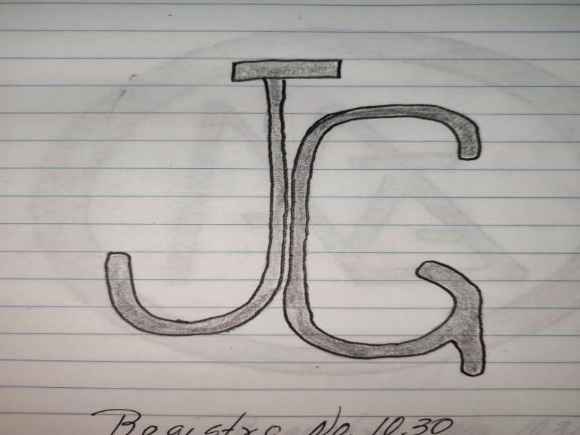 JG
Registro No. 10.30